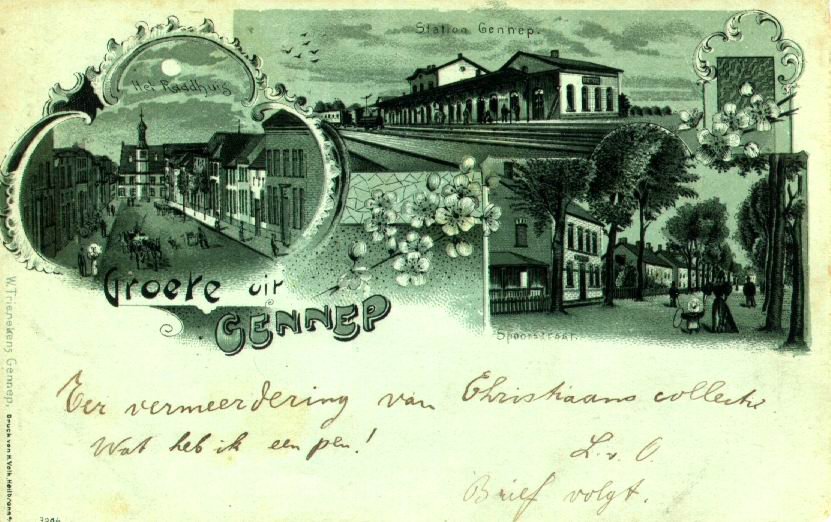 Station Gennep.
Het Raadhuis
Groete uit
GENNEP
Spoorstraat.
Ter vermeerdering van Christiaans collectie
Wat heb ik een pen!
L. v. O.
Brief volgt.
W. Trienekens, Gennep.
Druck von H. Volk, Heilbronn